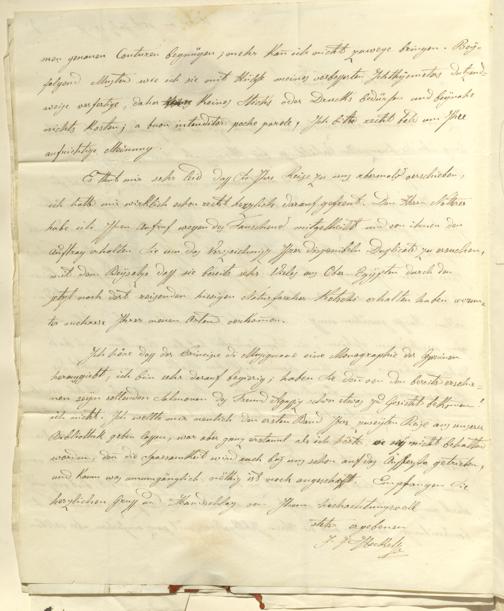 men genauen Conturen begnügen; mehr kan ich nicht zuwege bringen. Bey-
folgend Muster wie ich sie mit Hülfe meines verbesserten Ichthyometers dutzend-
weise verfertige, daher keines Stichs oder Drucks bedürfen und beynahe
nichts kosten; a buon intenditor poche parole, Ich bitte recht sehr um Ihre
aufrichtige Meinung.
Es thut mir sehr leid daß die Ihre Reise zu uns abermals verschieben,
ich hatte mich wirklich schon recht herzlich darauf gefreut. Den Herrn
habe ich Ihren Aufruf wegen des Tausches mitgetheilt und von ihnen den
Auftrag erhalten Sie um das Verzeichniß Ihrer Duplicate zu ersuchen,
mit dem Beysatze daß sie bereits sehr Vieles aus Ober Egypten durch den
jetzt noch dort reisenden hiesigen Naturforscher Kotschi erhalten haben worun-
ter mehrere Ihrer neuen Arten vorkommen.
Ich höre daß der Principe di Musignano eine Monographie der Cyprinen
herausgiebt, ich bin sehr darauf begierig; haben Sie den von den bereits erschie-
nen seyn sollenden Salmonen des Freund Agassiz schon etwas zu Gesicht bekommen?
ich nicht. Ich wollte mir neulich den ersten Band Ihrer Reise aus unserer
Bibliothek geben lassen, war aber ganz erstaunt als ich hörte nicht behalten
worden, den die Sparsamkeit wird auch bey uns schon auf das Äusserste getrieben,
und kaum was unumgänglich nöthig ist noch angeschaft. Empfangen Sie
herzlichen Gruß und Handschlag von Ihrem hochachtungsvoll
ergebenen
J. J. Heckel